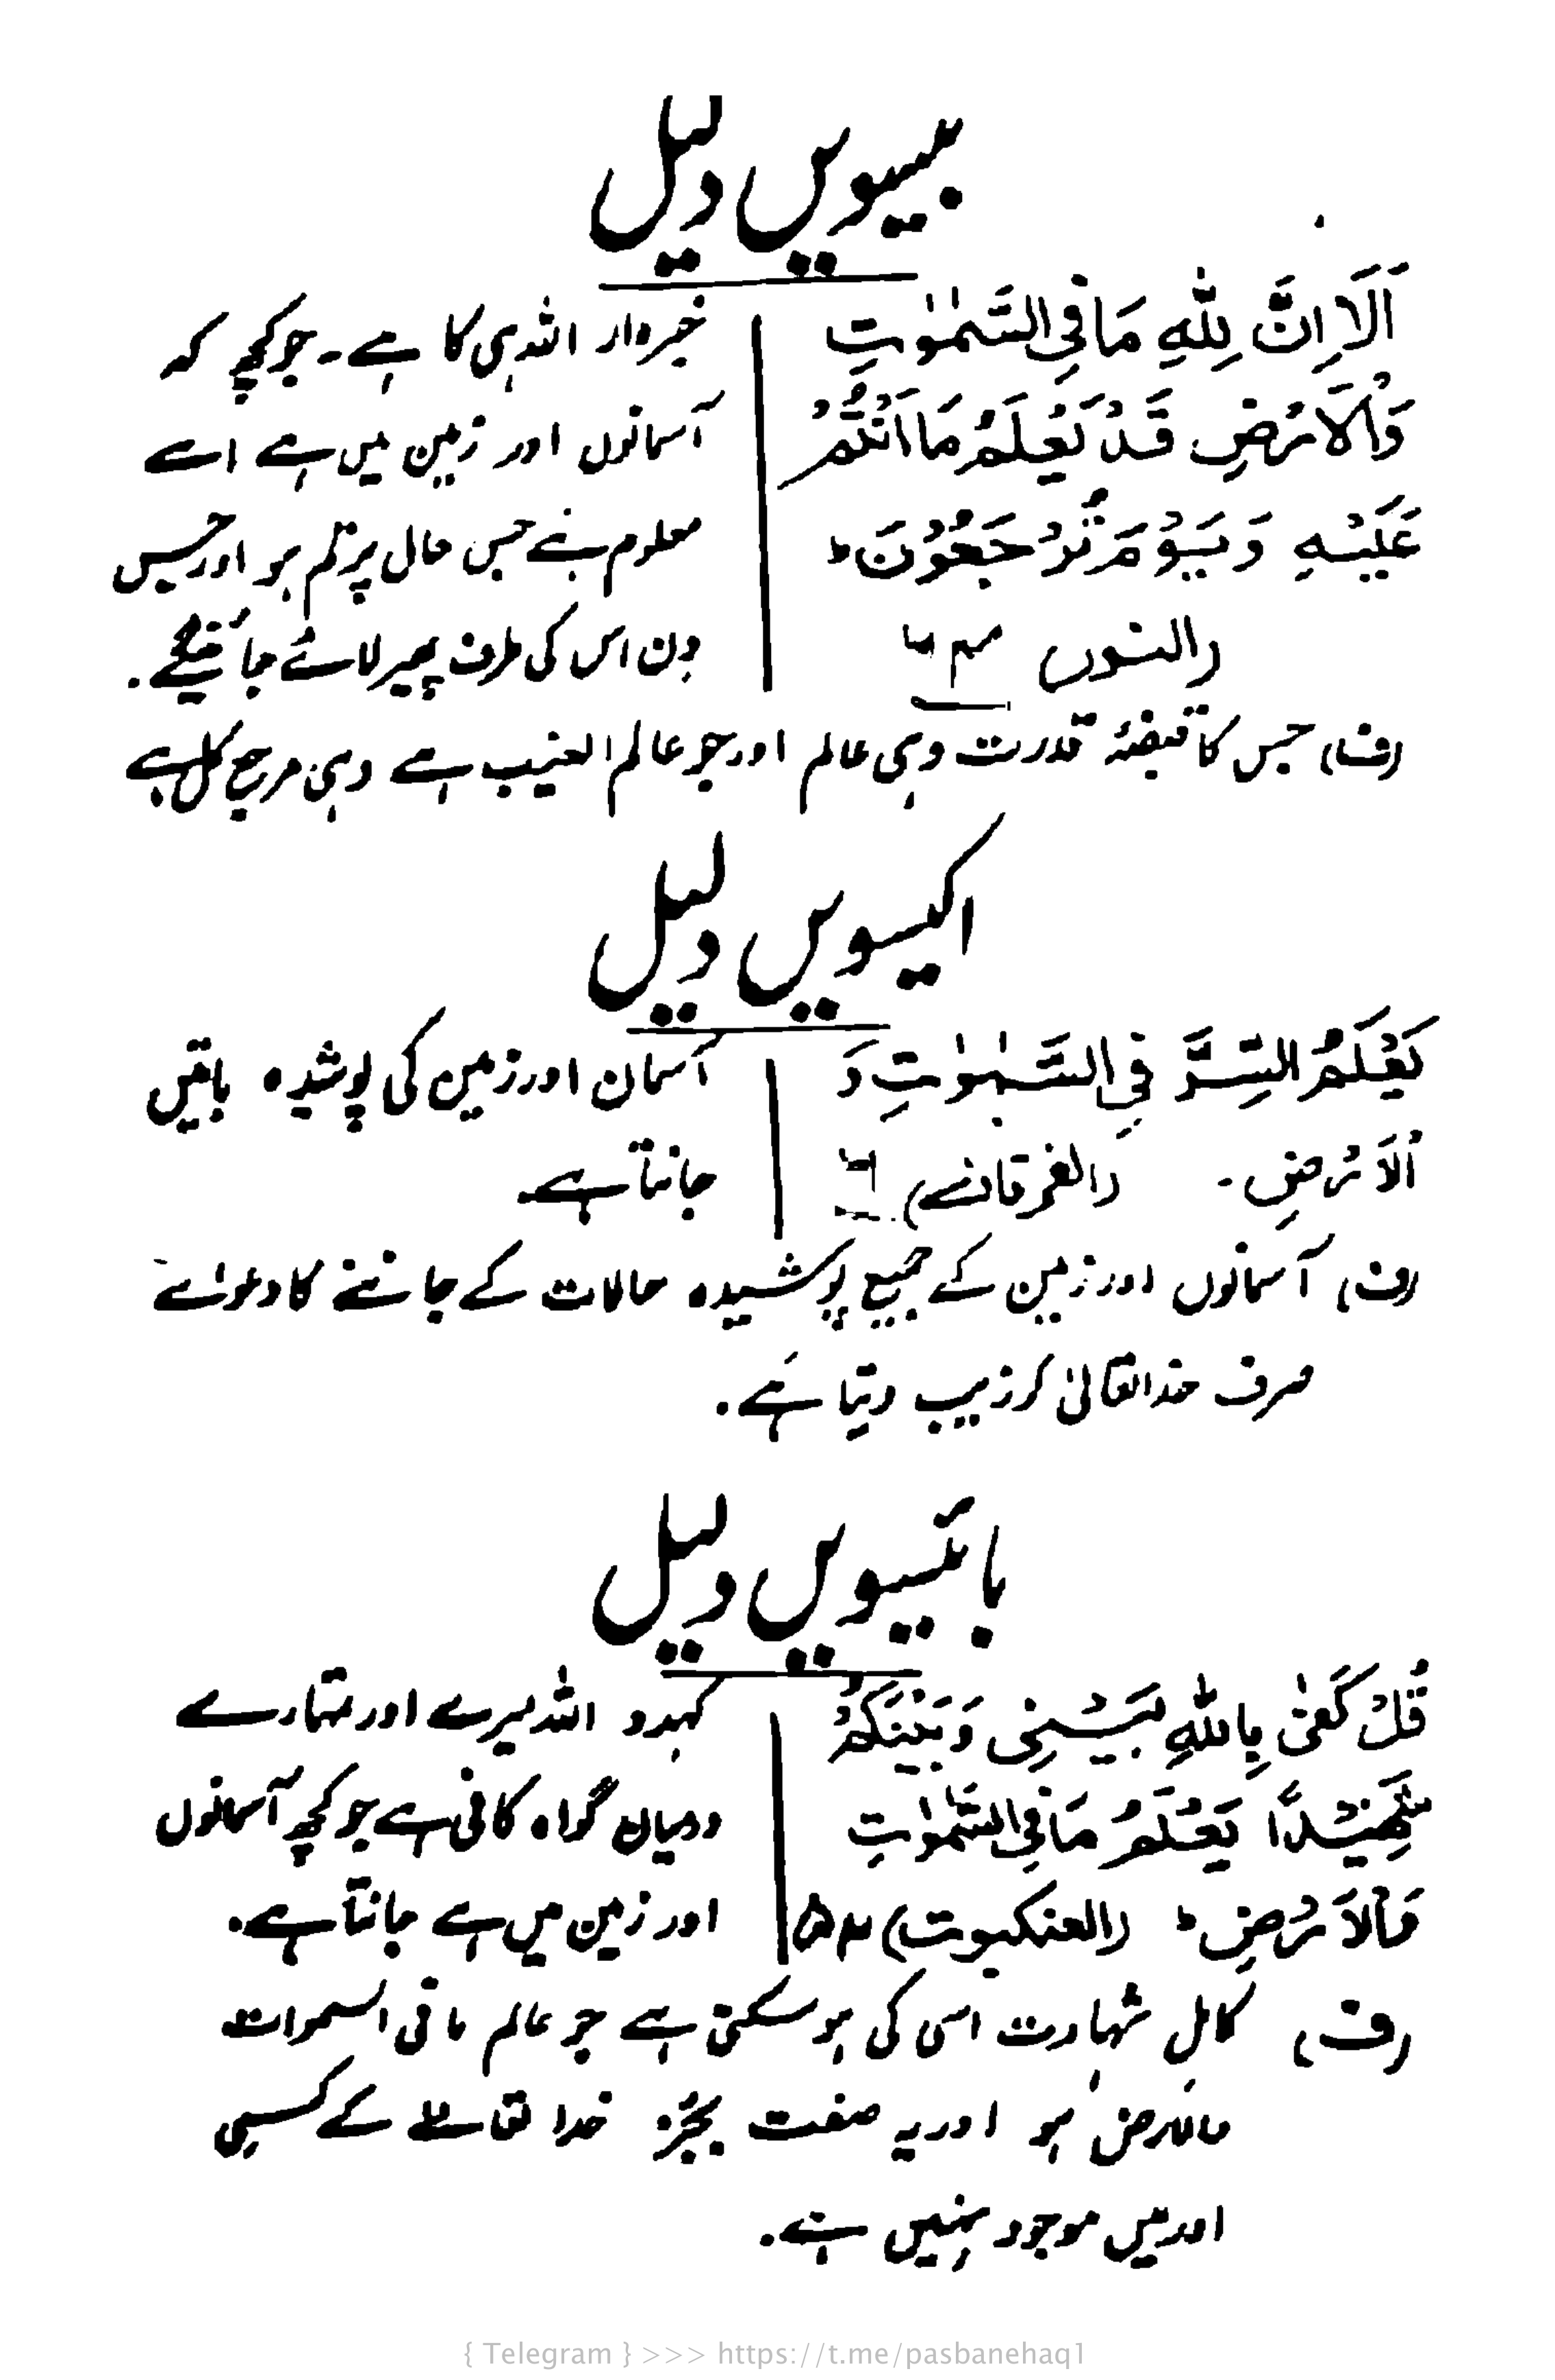 بیسویں دلیل
اَلَا اِنَّ لِلّٰهِ مَا فِی السَّمٰوٰتِ
وَالْاَرْضِ قَدْ یَعْلَمُ مَا اَنْتُمْ
عَلَیْهِ وَ یَوْمَ یُرْجَعُوْنَ ط
(النور) ۶۴
خبردار اللہ ہی کا ہے۔ جو کچھ کہ
آسمانوں اور زمین میں ہے اسے
معلوم ہے جس حال پر تم ہو اور جس
دن اس کی طرف پھیر لائے جائینگے۔
(ف) جس کا قبضۂ قدرت وہی عالم اور جو عالم الغیب ہے وہی مرجع کل ہے
اکیسویں دلیل
یَعْلَمُ السِّرَّ فِی السَّمٰوٰتِ وَ
الْاَرْضِ۔ (الفرقان) ۶
آسمان اور زمین کی پوشیدہ باتیں
جانتا ہے۔
(ف) آسمانوں اور زمین کے جمیع پوشیدہ حالات کے جاننے کا دعوائے
صرف خدا تعالیٰ کو زیب دیتا ہے۔
بائیسویں دلیل
قُلْ کَفٰی بِاللّٰهِ بَیْنِیْ وَ بَیْنَکُمْ
شَهِیْدًا یَعْلَمُ مَا فِی السَّمٰوٰتِ
وَالْاَرْضِ ط (العنکبوت) ۵۲
کہدو اللہ میرے اور تمہارے
درمیان گواہ کافی ہے جو کچھ آسمانوں
اور زمین میں ہے جانتا ہے۔
(ف) کامل شہادت اسی کی ہو سکتی ہے جو عالم ما فی السموات
والارض ہو اور یہ صفت بجز خدا تعالےٰ کے کسی
اور میں موجود نہیں ہے۔
{ Telegram } >>> https://t.me/pasbanehaq1